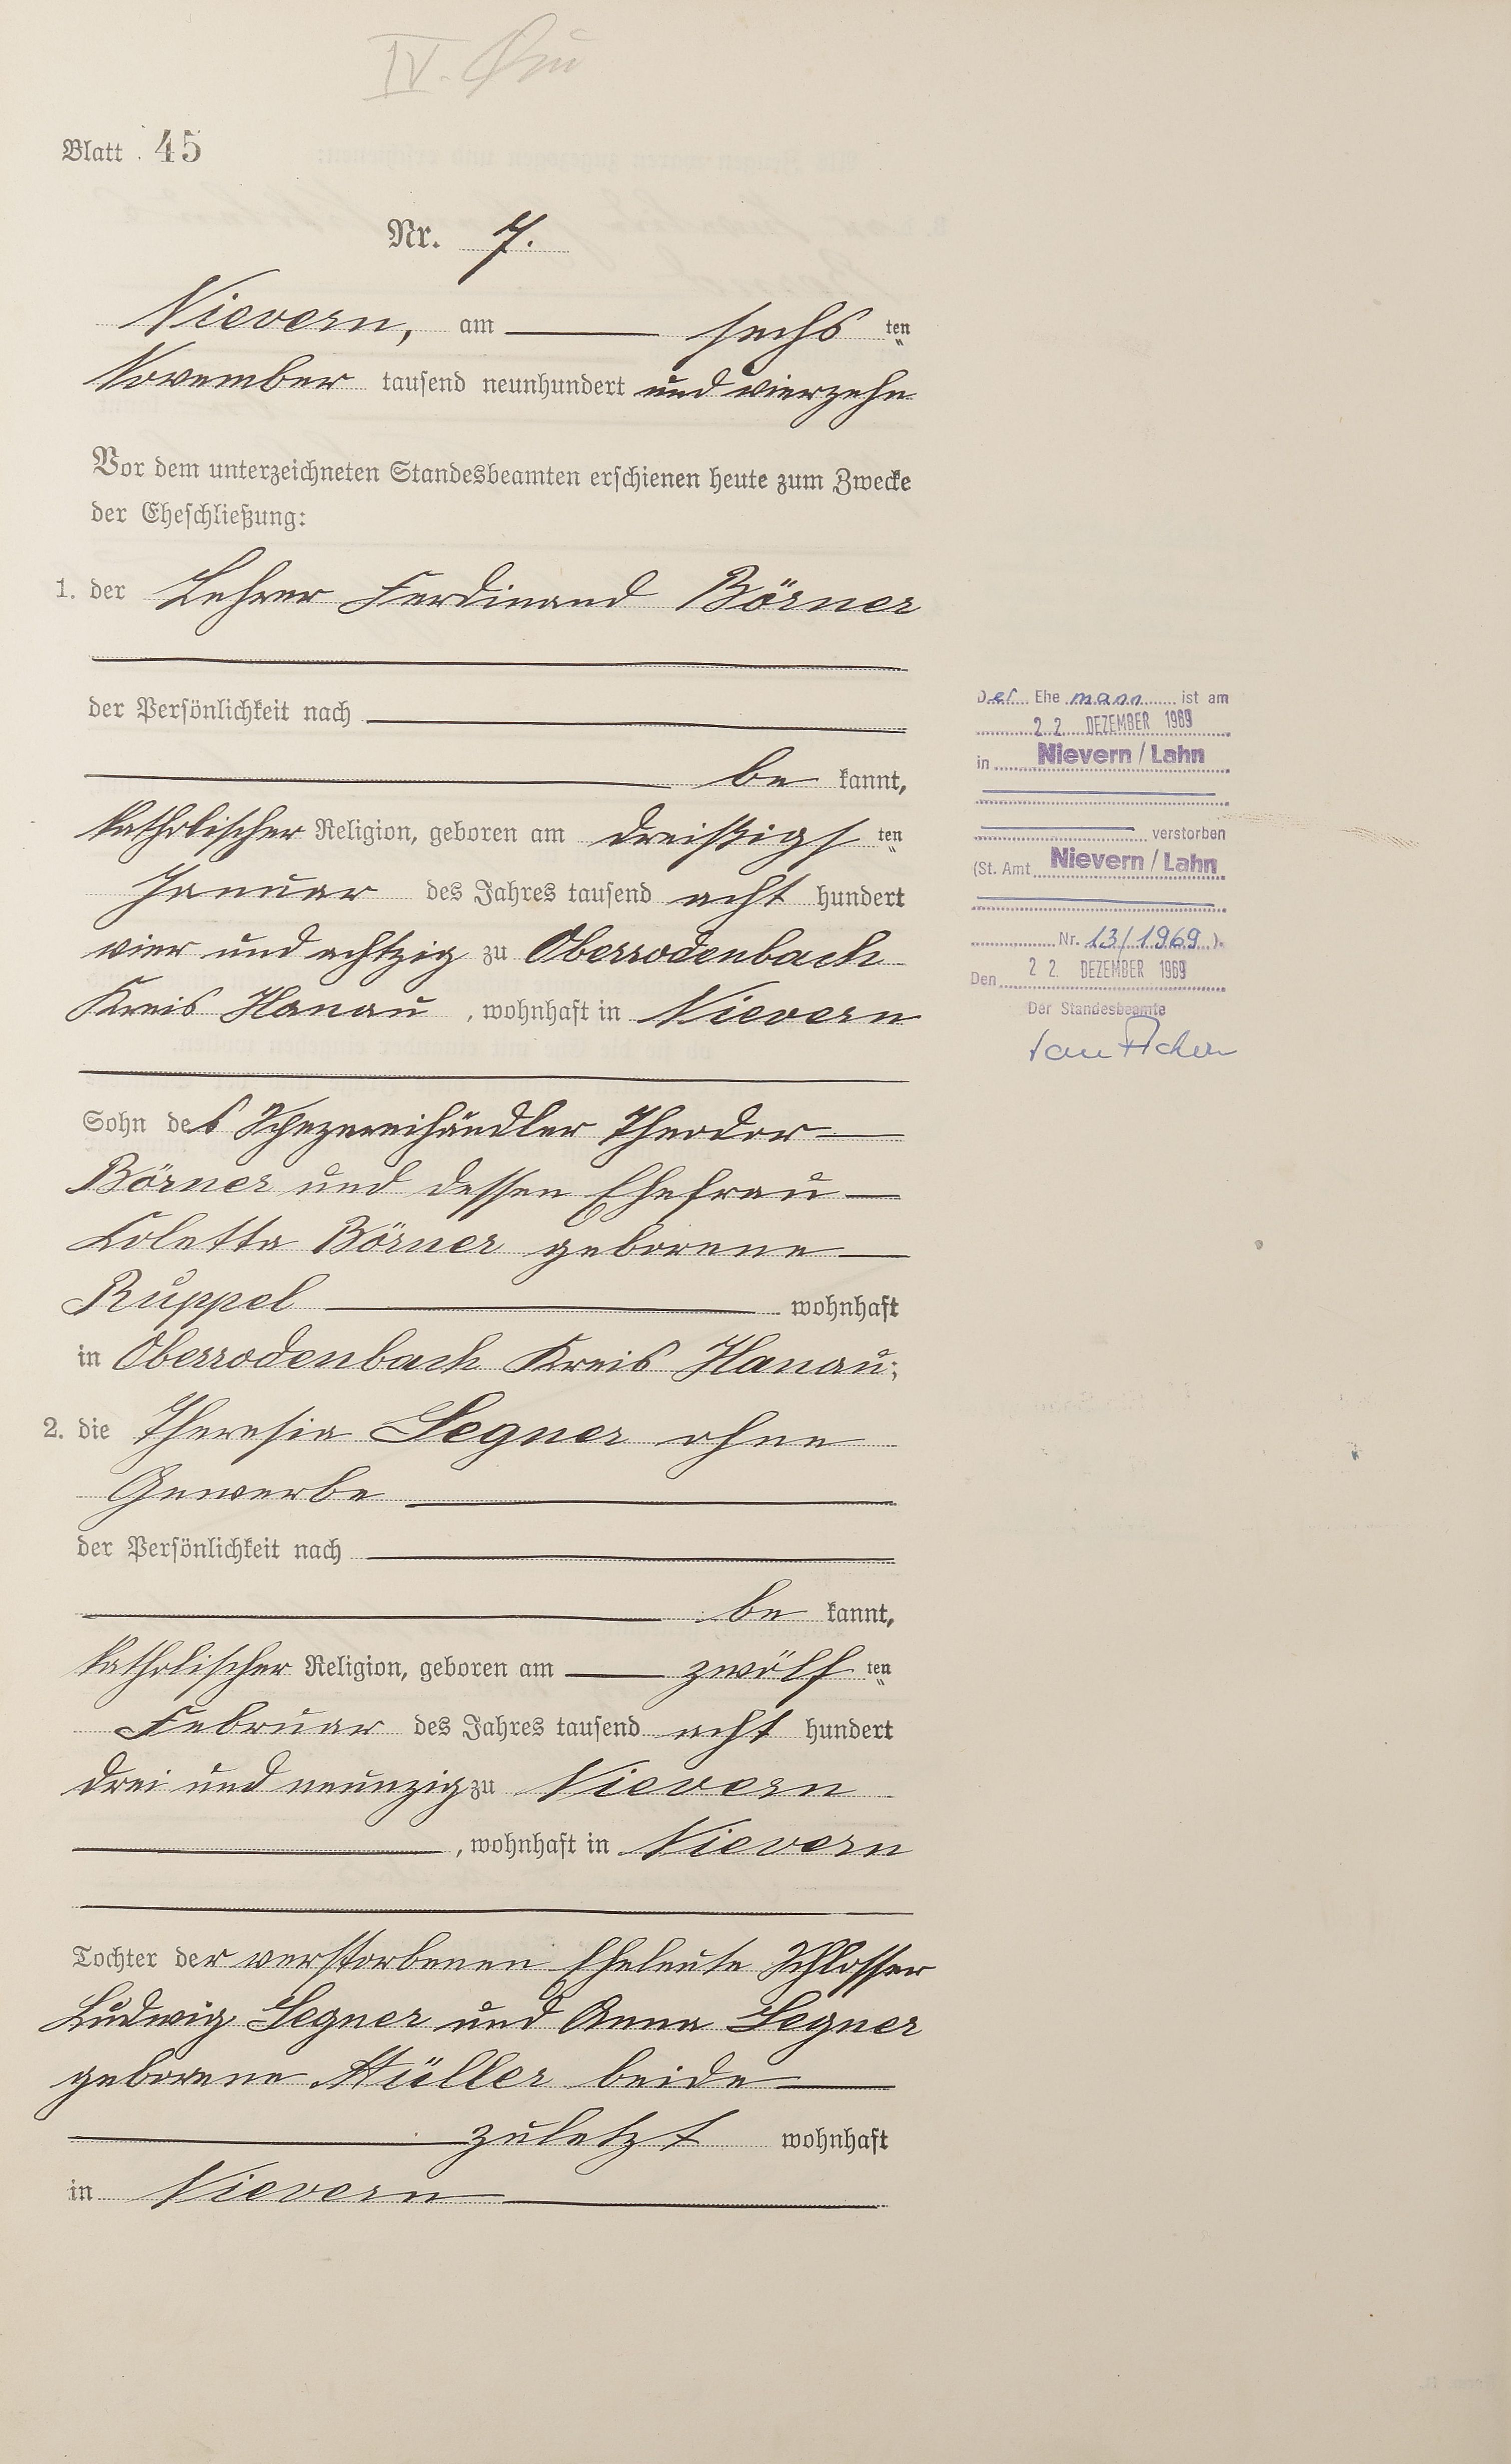 IV.
Blatt 45
Nr. 7.
Nievern, am sechs ten
November tausend neunhundert und vierzehn
Vor dem unterzeichneten Standesbeamten erschienen heute zum Zwecke
der Eheschließung:
1. der Lehrer Ferdinand Börner
der Persönlichkeit nach
be kannt,
katholischer Religion, geboren am dreißigs ten
Januar des Jahres tausend acht hundert
vier und achtzig zu Oberrodenbach
Kreis Hanau, wohnhaft in Nievern
Sohn des Spezereihändler Theodor
Börner und dessen Ehefrau
Coletta Börner geborene
Ruppel wohnhaft
in Oberrodenbach Kreis Hanau;
2. die Theresia Segner ohne
Gewerbe
der Persönlichkeit nach
be kannt,
katholischer Religion, geboren am zwölf ten
Februar des Jahres tausend acht hundert
drei und neunzig zu Nievern
, wohnhaft in Nievern
Tochter der verstorbenen Eheleute Schlosser
Ludwig Segner und Anna Segner
geborene Müller beide
zuletzt wohnhaft
in Nievern
Der Ehe mann ist am
22. DEZEMBER 1969
in Nievern/Lahn
verstorben
(St. Amt Nievern/Lahn
Nr. 13/1969).
Den 22. DEZEMBER 1969
Der Standesbeamte